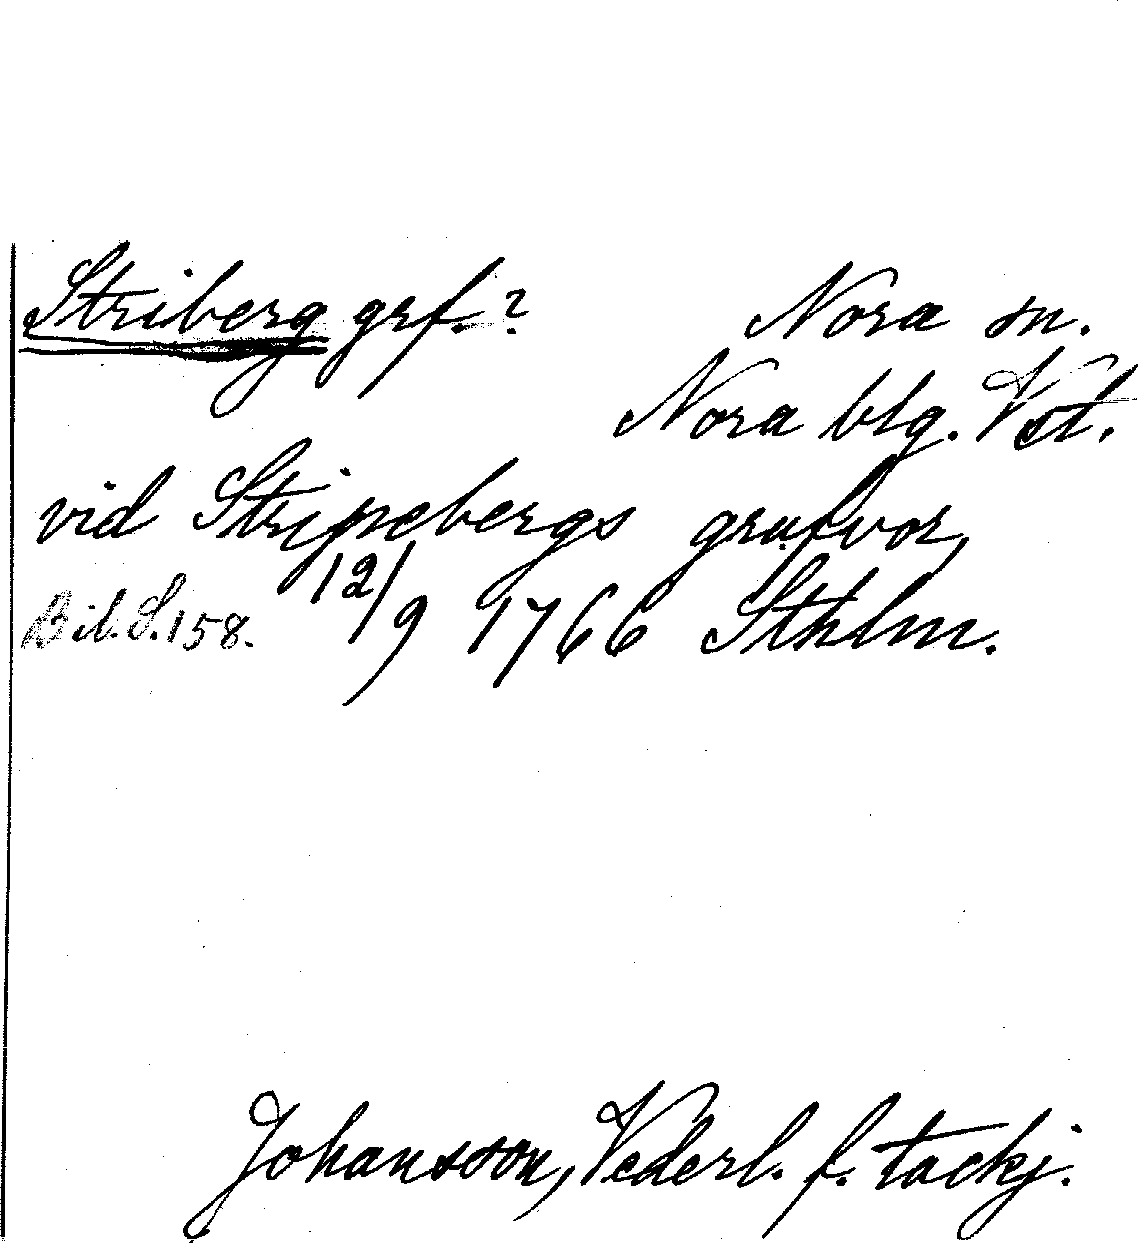 Striberg grf.? Nora sn.
Nora blg. Vstl.
vid Stripebergs grufvor,
Bil. S. 158. 12/9 1766 Sthlm.
Johansson, Vederl. f. tackj.